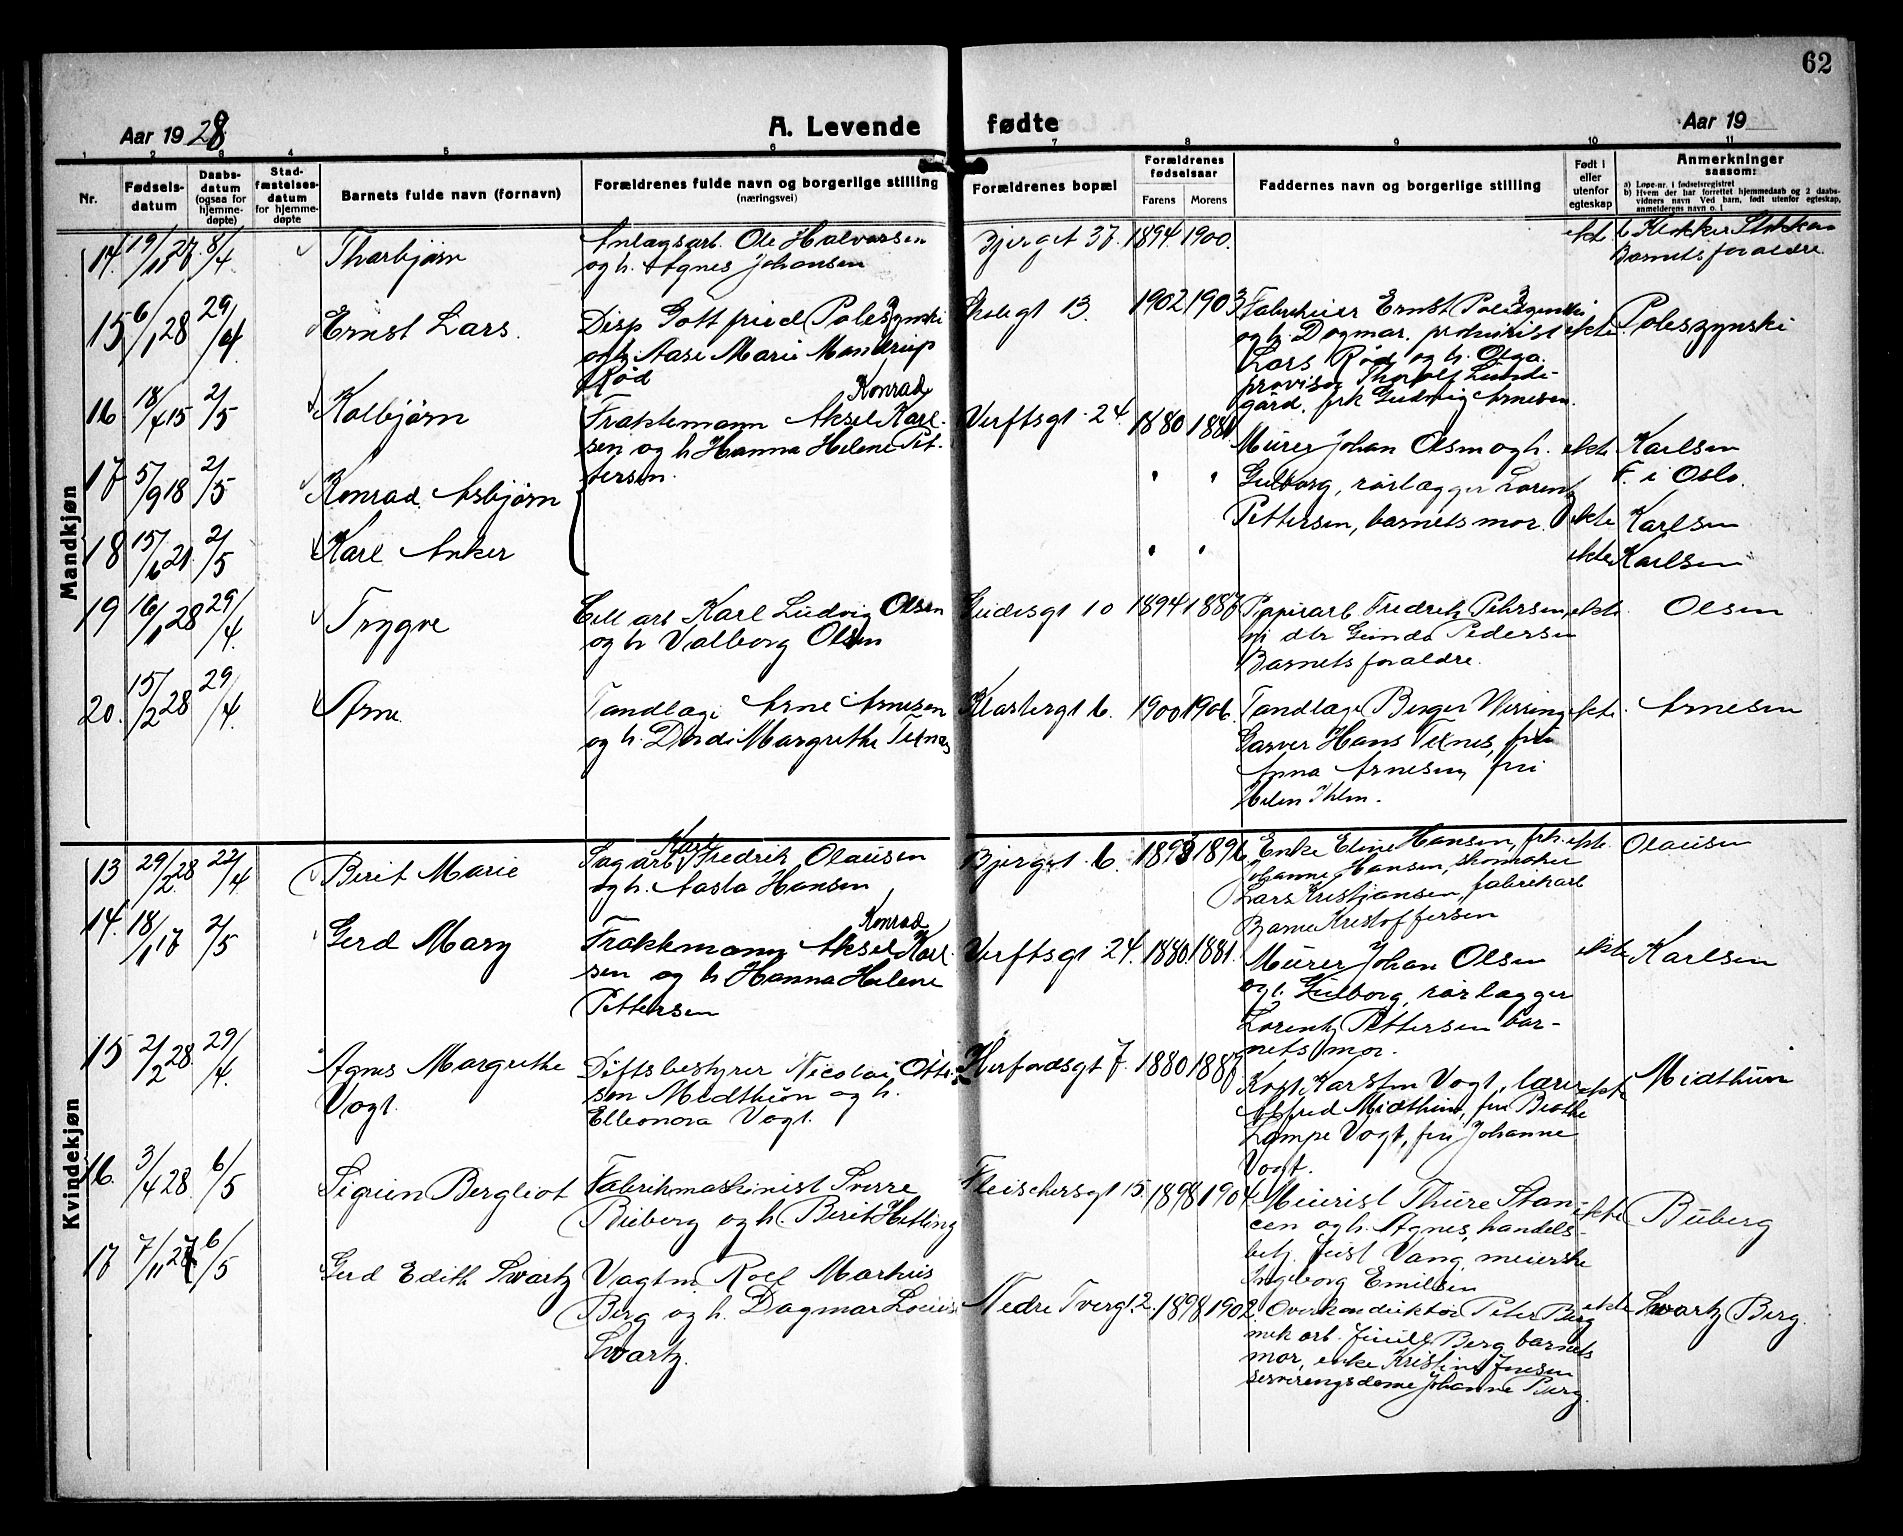 62
Aar 1928
A. Levende fødte
Aar 19
1 2 3 4 5 6 7 8 9 10 11
Nr.
Fødsels-
datum
Daabs-
datum
(ogsaa for
hjemme-
døpte)
Stad-
fæstelses-
datum
for hjemme-
døpte
Barnets fulde navn (fornavn)
Forældrenes fulde navn og borgerlige stilling
(næringsvei)
Forældrenes bopæl
Forældrenes
fødselsaar
Farens Morens
Faddernes navn og borgerlig stilling
Født i
eller
utenfor
egteskap
Anmerkninger
saasom:
a) Løpe-nr. i fødselsregistret
b) Hvem der har forrettet hjemmedaab og 2 daabs-
vidners navn Ved barn, født utenfor egteskap,
anmelderens navn o. l
Mandkjøn
14. 19/11 27 8/4 Thorbjørn
Anlægsarb. Ole Halvorsen
og h. Agnes Johansen
Bjerget 37. 1894 1900.
ekte
b Klokker Stokkan
Barnets foraldre
15 6/1 28 29/4 Ernst Lars.
Disp Gottfried Poleszynski
og h. Aase Marie Mandrup
Rød
Skolegt 13. 1902 1903
Fabrikeier Ernst Poleszynski
og h. Dagmar. prokurist
Lars Rød og h. Olga.
provisor Thorolf Lunde-
gård. frk Gudwig Arnesen.
ekte Poleszynski
16 18/4 15 2/5 Kolbjørn
Konrad
Traktemann Aksel Karl-
sen og h Hanna Helene Pet-
tersen.
Verftsgt. 24. 1880 1881
Murer Johan Olsen og h.
Gulborg, rørlægger Lorentz
Pettersen, barnets mor.
ekte Karlsen
F. i Oslo.
17 5/9 18 2/5 Konrad Asbjørn
" "
ekte Karlsen
18 15/6 21 2/5 Karl Anker
" "
ekte Karlsen
19 16/1 28 29/4. Trygve
Cell arb Karl Ludvig Olsen
og h Valborg Olsen
Gudesgt 10 1894 1887
Papirarb. Fredrik Pettersen,
Pedersen
Barnets foraldre.
ekte Olsen
20. 15/2 28 29/4 Arne
Tandlæge Arne Arnesen
og h. Dordi Margrethe Texnes
Klosbergt 6. 1900 1906.
Tandlæge Berger Wirring
Garver Hans Texnes, fru
Anna Arnesen, fru
Helen Ihlen.
ekte Arnesen
Kvindekjøn
13 29/2 28 22/4 Berit Marie
Karl
Sagarb Fredrik Olausen
og h. Aasta Hansen
Bjerget 6. 1893 1896
Enke Eline Hansen, frk
Johanne Hansen, skomaker
Lars Kristjansen, fabrikarb
Kristoffersen
ekte Olausen
14. 18/1 17 2/5 Gerd Mary
Konrad
Trakkmann Aksel Karl-
sen og h Hanna Helene
Pettersen
Verftsgt 24. 1880 1881.
Murer Johan Olsen
og h. Gulborg, rørlægger
Lorentz Pettersen bar-
nets mor.
ekte Karlsen
15 2/2 28 29/4. Agnes Margrethe
Vogt.
Driftsbestyrer Nicolai Otte-
sen Midthun og h.
Elleonora Vogt.
Herfordsgt 7. 1880 1887
Karsten Vogt, lærer
Alfred Midthun, fru Birthe
Lampe Vogt, fru Johanne
Vogt.
ekte Midthun
16. 3/4 28 6/5 Sigrun Bergliot
Fabrikmaskinist Sverre
Buberg og h. Berit Hetling
Fleischersgt 15. 1898 1904
Meierist Thure Stan-
cen og h. Agnes, handels-
betj. Just Vang, meierske
Ingeborg Emilsen
ekte Buberg
17 7/11 27 6/5 Gerd Edith Swartz
Vagtm Rolf Markus
Berg og h. Dagmar Louis
Swartz.
Nedre Tvergt. 2. 1898 1902.
Overkonduktør Peter Berg
mek arb. Berg barnets
mor, enke Kristine Jensen
serveringsdame Johanne Berg.
ekte Swartz Berg.